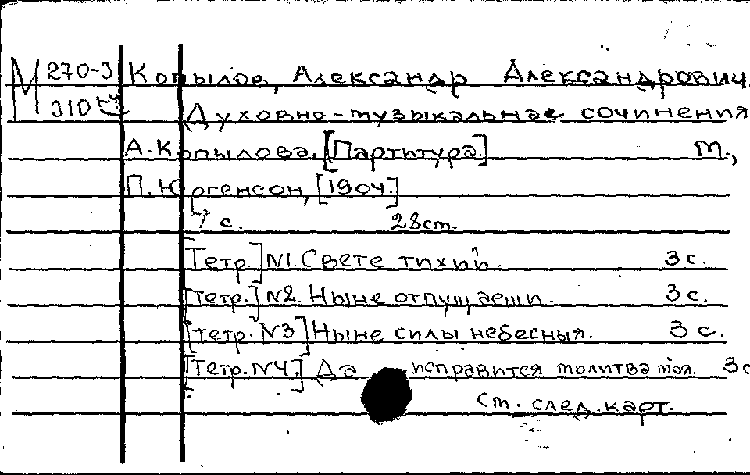 М 270-3 Копылов, Александр Александрович.
310
Духовно-музыкальные сочинения
А. Копылова. [Партитура] М.,
П. Юргенсон, [1904]
7 с. 28 ст.
[Тетр.] №1 Свете тихий. 3 с.
[Тетр.] №2. Ныне отпущаеши. 3 с.
[Тетр. №3] Ныне силы небесныя. 3 с.
[Тетр. №4] Да исправится молитва моя. 3 с
См. след. карт.